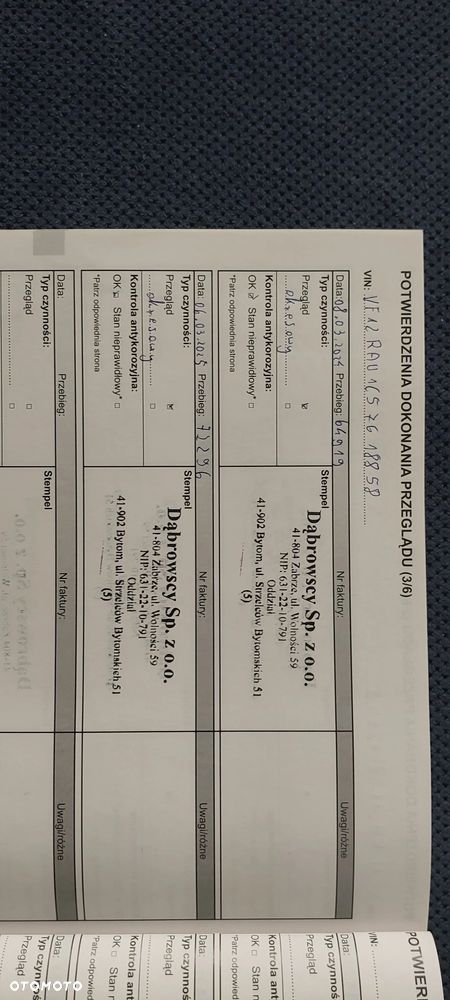 POTWIERDZENIA DOKONANIA PRZEGLĄDU (3/6)
VIN: VF12RAU1657618858
Data: 08.03.2024 Przebieg: 64919 Nr faktury: Uwagi/różne
Typ czynności: Stempel
Przegląd
okresowy
Kontrola antykorozyjna:
OK Stan nieprawidłowy*
*Patrz odpowiednia strona
Dąbrowscy Sp. z o.o.
41-804 Zabrze, ul. Wolności 59
NIP: 631-22-10-791
Oddział
41-902 Bytom, ul. Strzelców Bytomskich 51
(5)
Data: 06.03.2025 Przebieg: 72296 Nr faktury: Uwagi/różne
Typ czynności: Stempel
Przegląd
okresowy
Kontrola antykorozyjna:
OK Stan nieprawidłowy*
*Patrz odpowiednia strona
Dąbrowscy Sp. z o.o.
41-804 Zabrze, ul. Wolności 59
NIP: 631-22-10-791
Oddział
41-902 Bytom, ul. Strzelców Bytomskich 51
(5)
Data: Przebieg: Nr faktury: Uwagi/różne
Typ czynności: Stempel
Przegląd
POTWIER
VIN:
Data:
Typ czynnoś
Przegląd
Kontrola ant
OK Stan n
*Patrz odpowied
Data:
Typ czynnoś
Przegląd
Kontrola ant
OK Stan n
*Patrz odpowied
Data:
Typ czynnoś
Przegląd
OTOMOTO